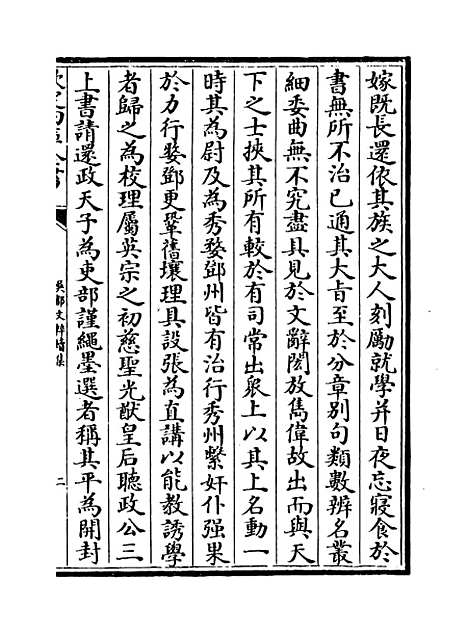 嫁既長還依其族之大人刻勵就學并日夜忘寢食於
書無所不治已通其大㫖至於分章别句類數辨名叢
細委曲無不究盡具見於文辭閎放雋偉故出而與天
下之士挾其所有較於有司常出衆上以其上名動一
時其為尉及為秀婺鄧州皆有治行秀州繫奸仆强果
於力行婺鄧更鞏舊壤理具設張為直講以能教誘學
者歸之為校理屬英宗之初慈聖光獻皇后聽政公三
上書請還政天子為吏部謹繩墨選者稱其平為開封
欽定四庫全書
吳都文粹續集
二